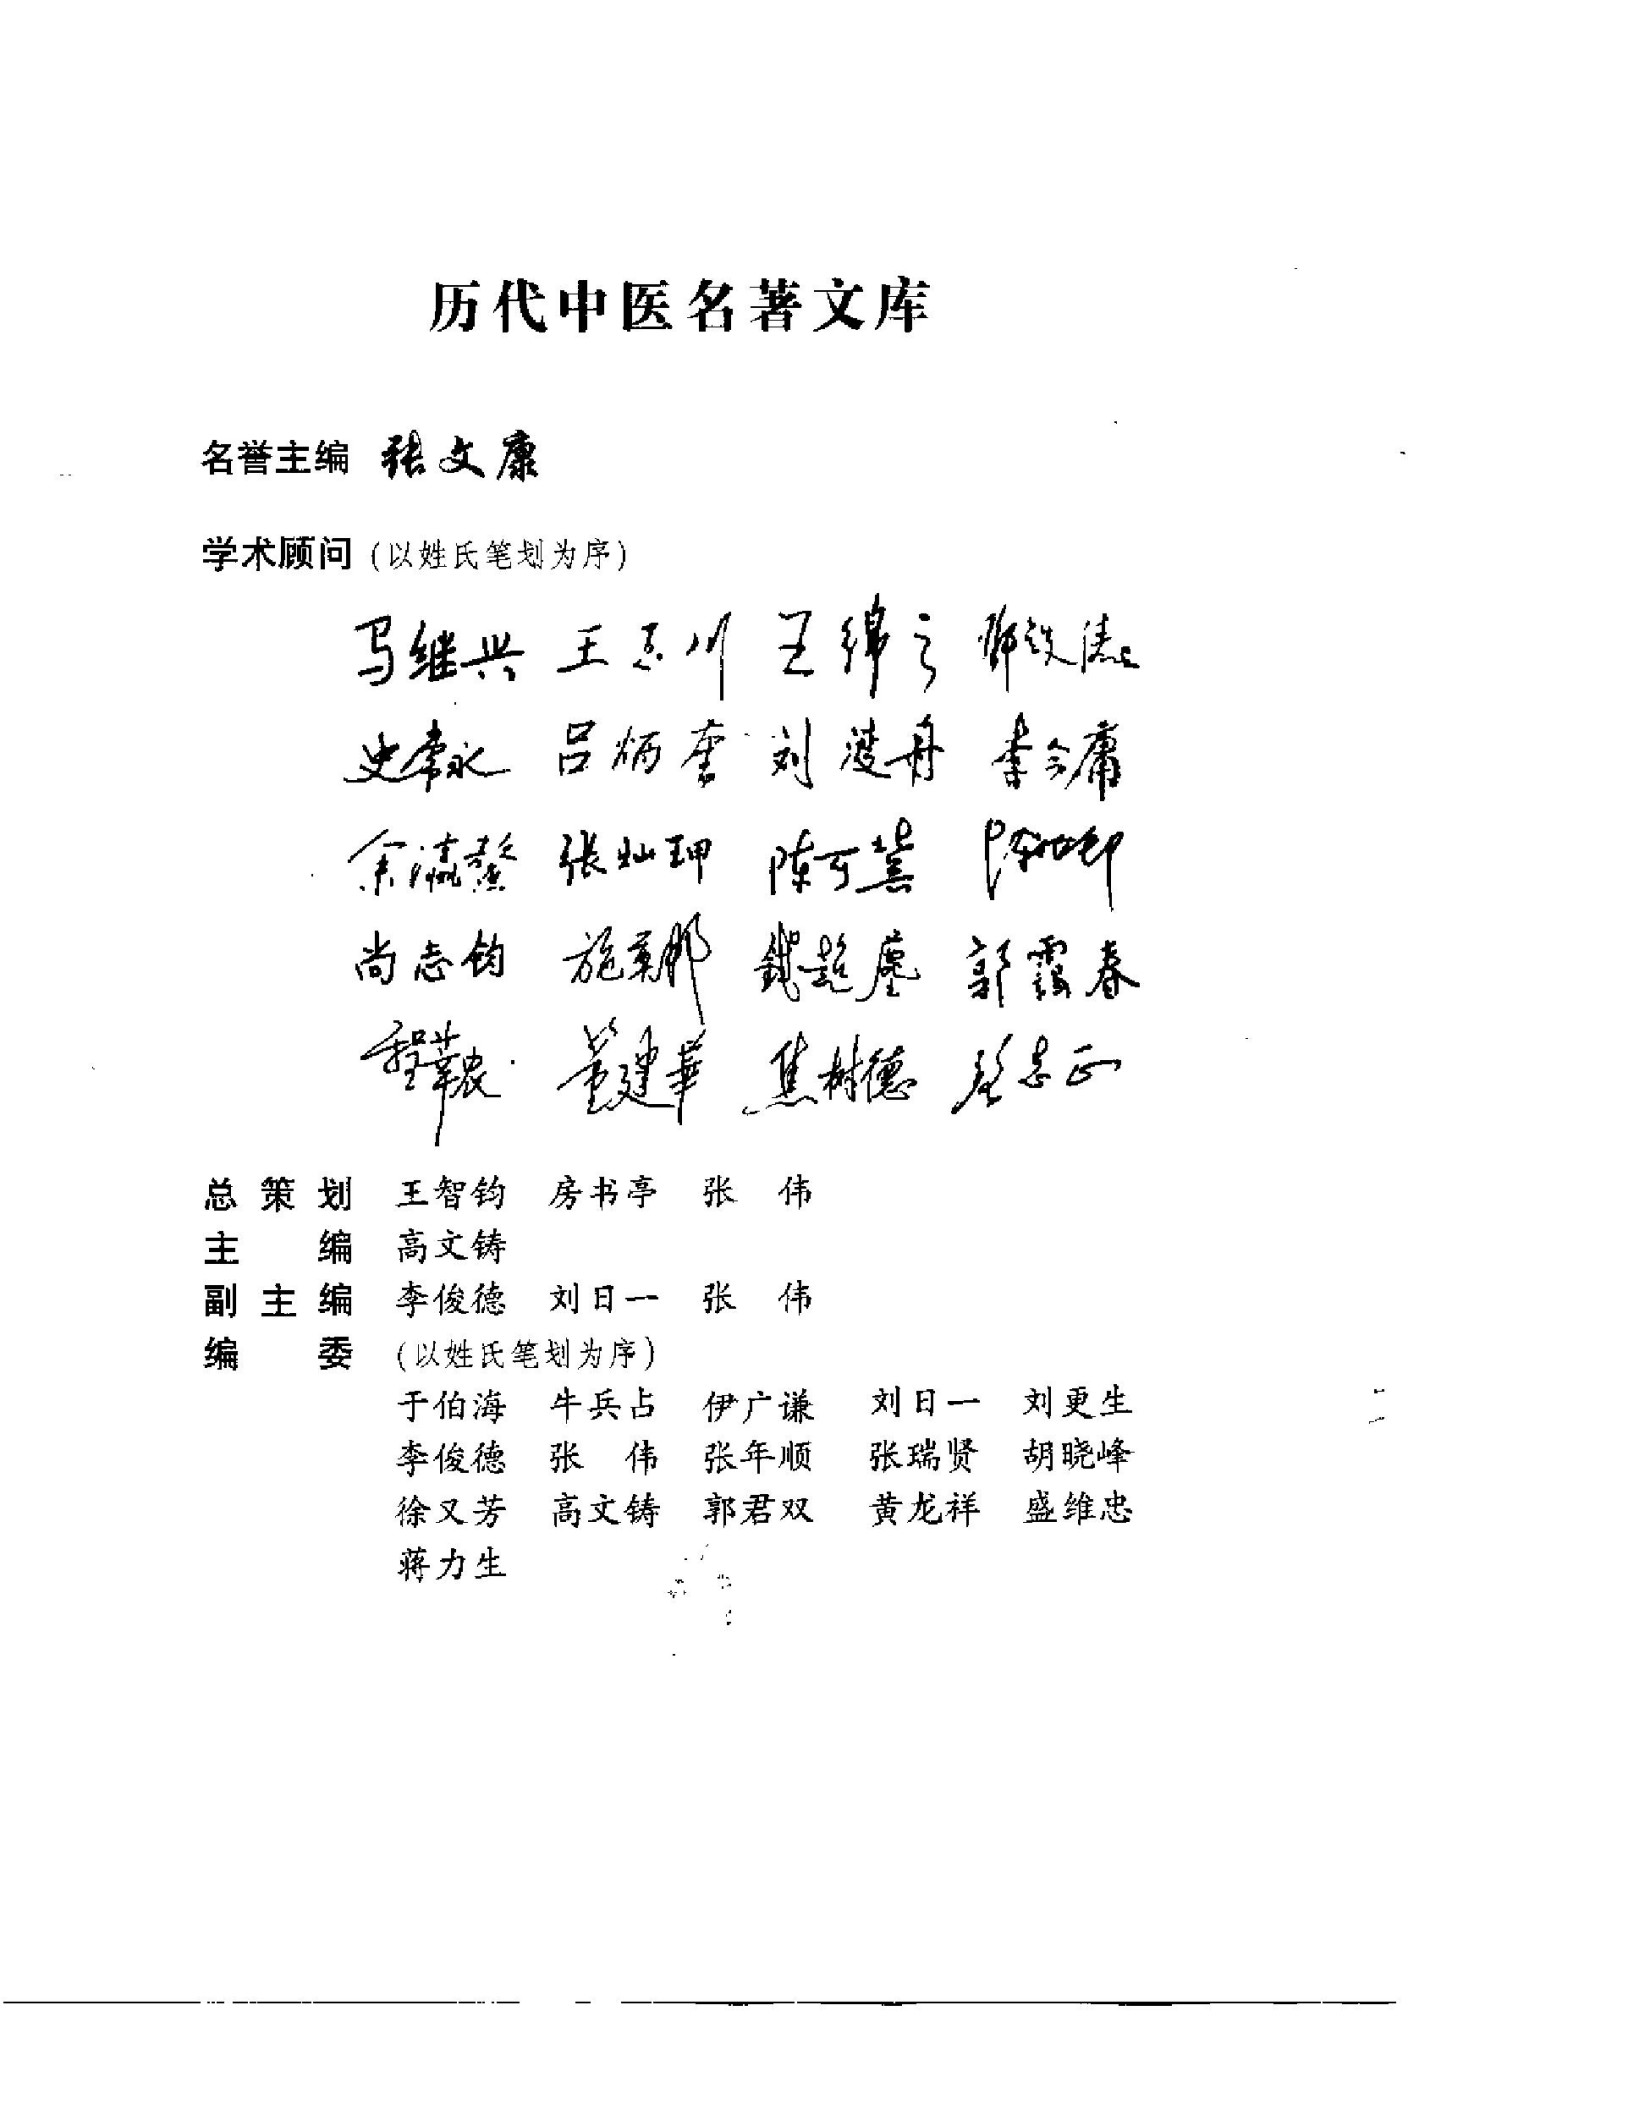 历代中医名著文库
名誉主编 张文康
学术顾问（以姓氏笔划为序）
马继兴 王玉川 王绵之 邓铁涛
史常永 吕炳奎 刘渡舟 李今庸
余瀛鳌 张灿玾 陈可冀
尚志钧 施奠邦 钱超尘 郭霭春
程莘农 董建华 焦树德 路志正
总策划 王智钧 房书亭 张伟
主编 高文铸
副主编 李俊德 刘日一 张伟
编委（以姓氏笔划为序）
于伯海 牛兵占 伊广谦 刘日一 刘更生
李俊德 张伟 张年顺 张瑞贤 胡晓峰
徐又芳 高文铸 郭君双 黄龙祥 盛维忠
蒋力生